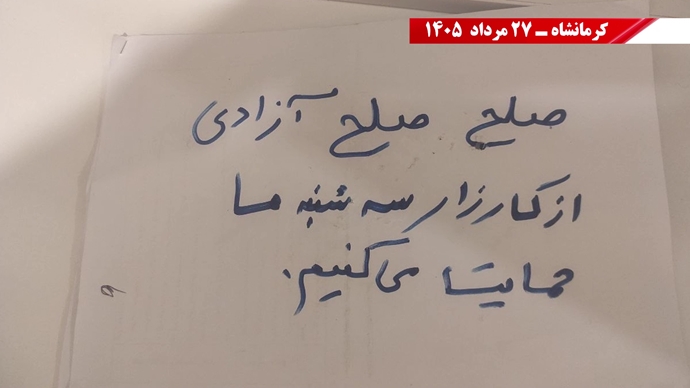 کرمانشاه ــ ۲۷ مرداد ۱۴۰۵
صلح صلح آزادی
از کارزار سه شنبه ها
حمایت می کنیم.